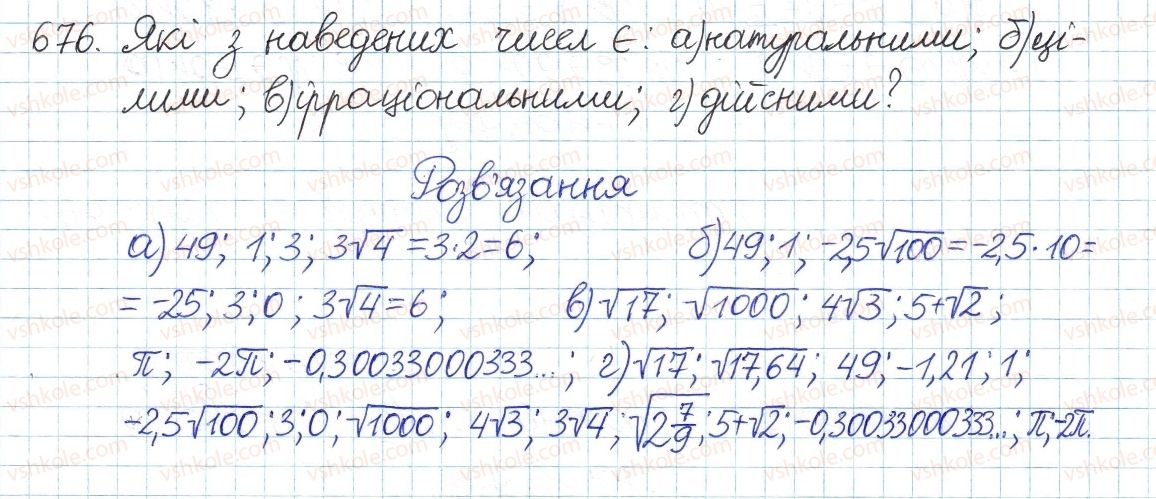 676. Які з наведених чисел є: а) натуральними; б) ці-
лими; в) ірраціональними; г) дійсними?
Розв'язання
а) 49; 1; 3; 3√4 = 3·2 = 6; б) 49; 1; -2,5√100 = -2,5·10 =
= -25; 3; 0; 3√4 = 6; в) √17; √1000; 4√3; 5+√2;
π; -2π; -0,30033000333...; г) √17; √17,64; 49; -1,21; 1;
-2,5√100; 3; 0; √1000; 4√3; 3√4; √(2 7/9); 5+√2; -0,30033000333...; π; -2π.
vshkole.com